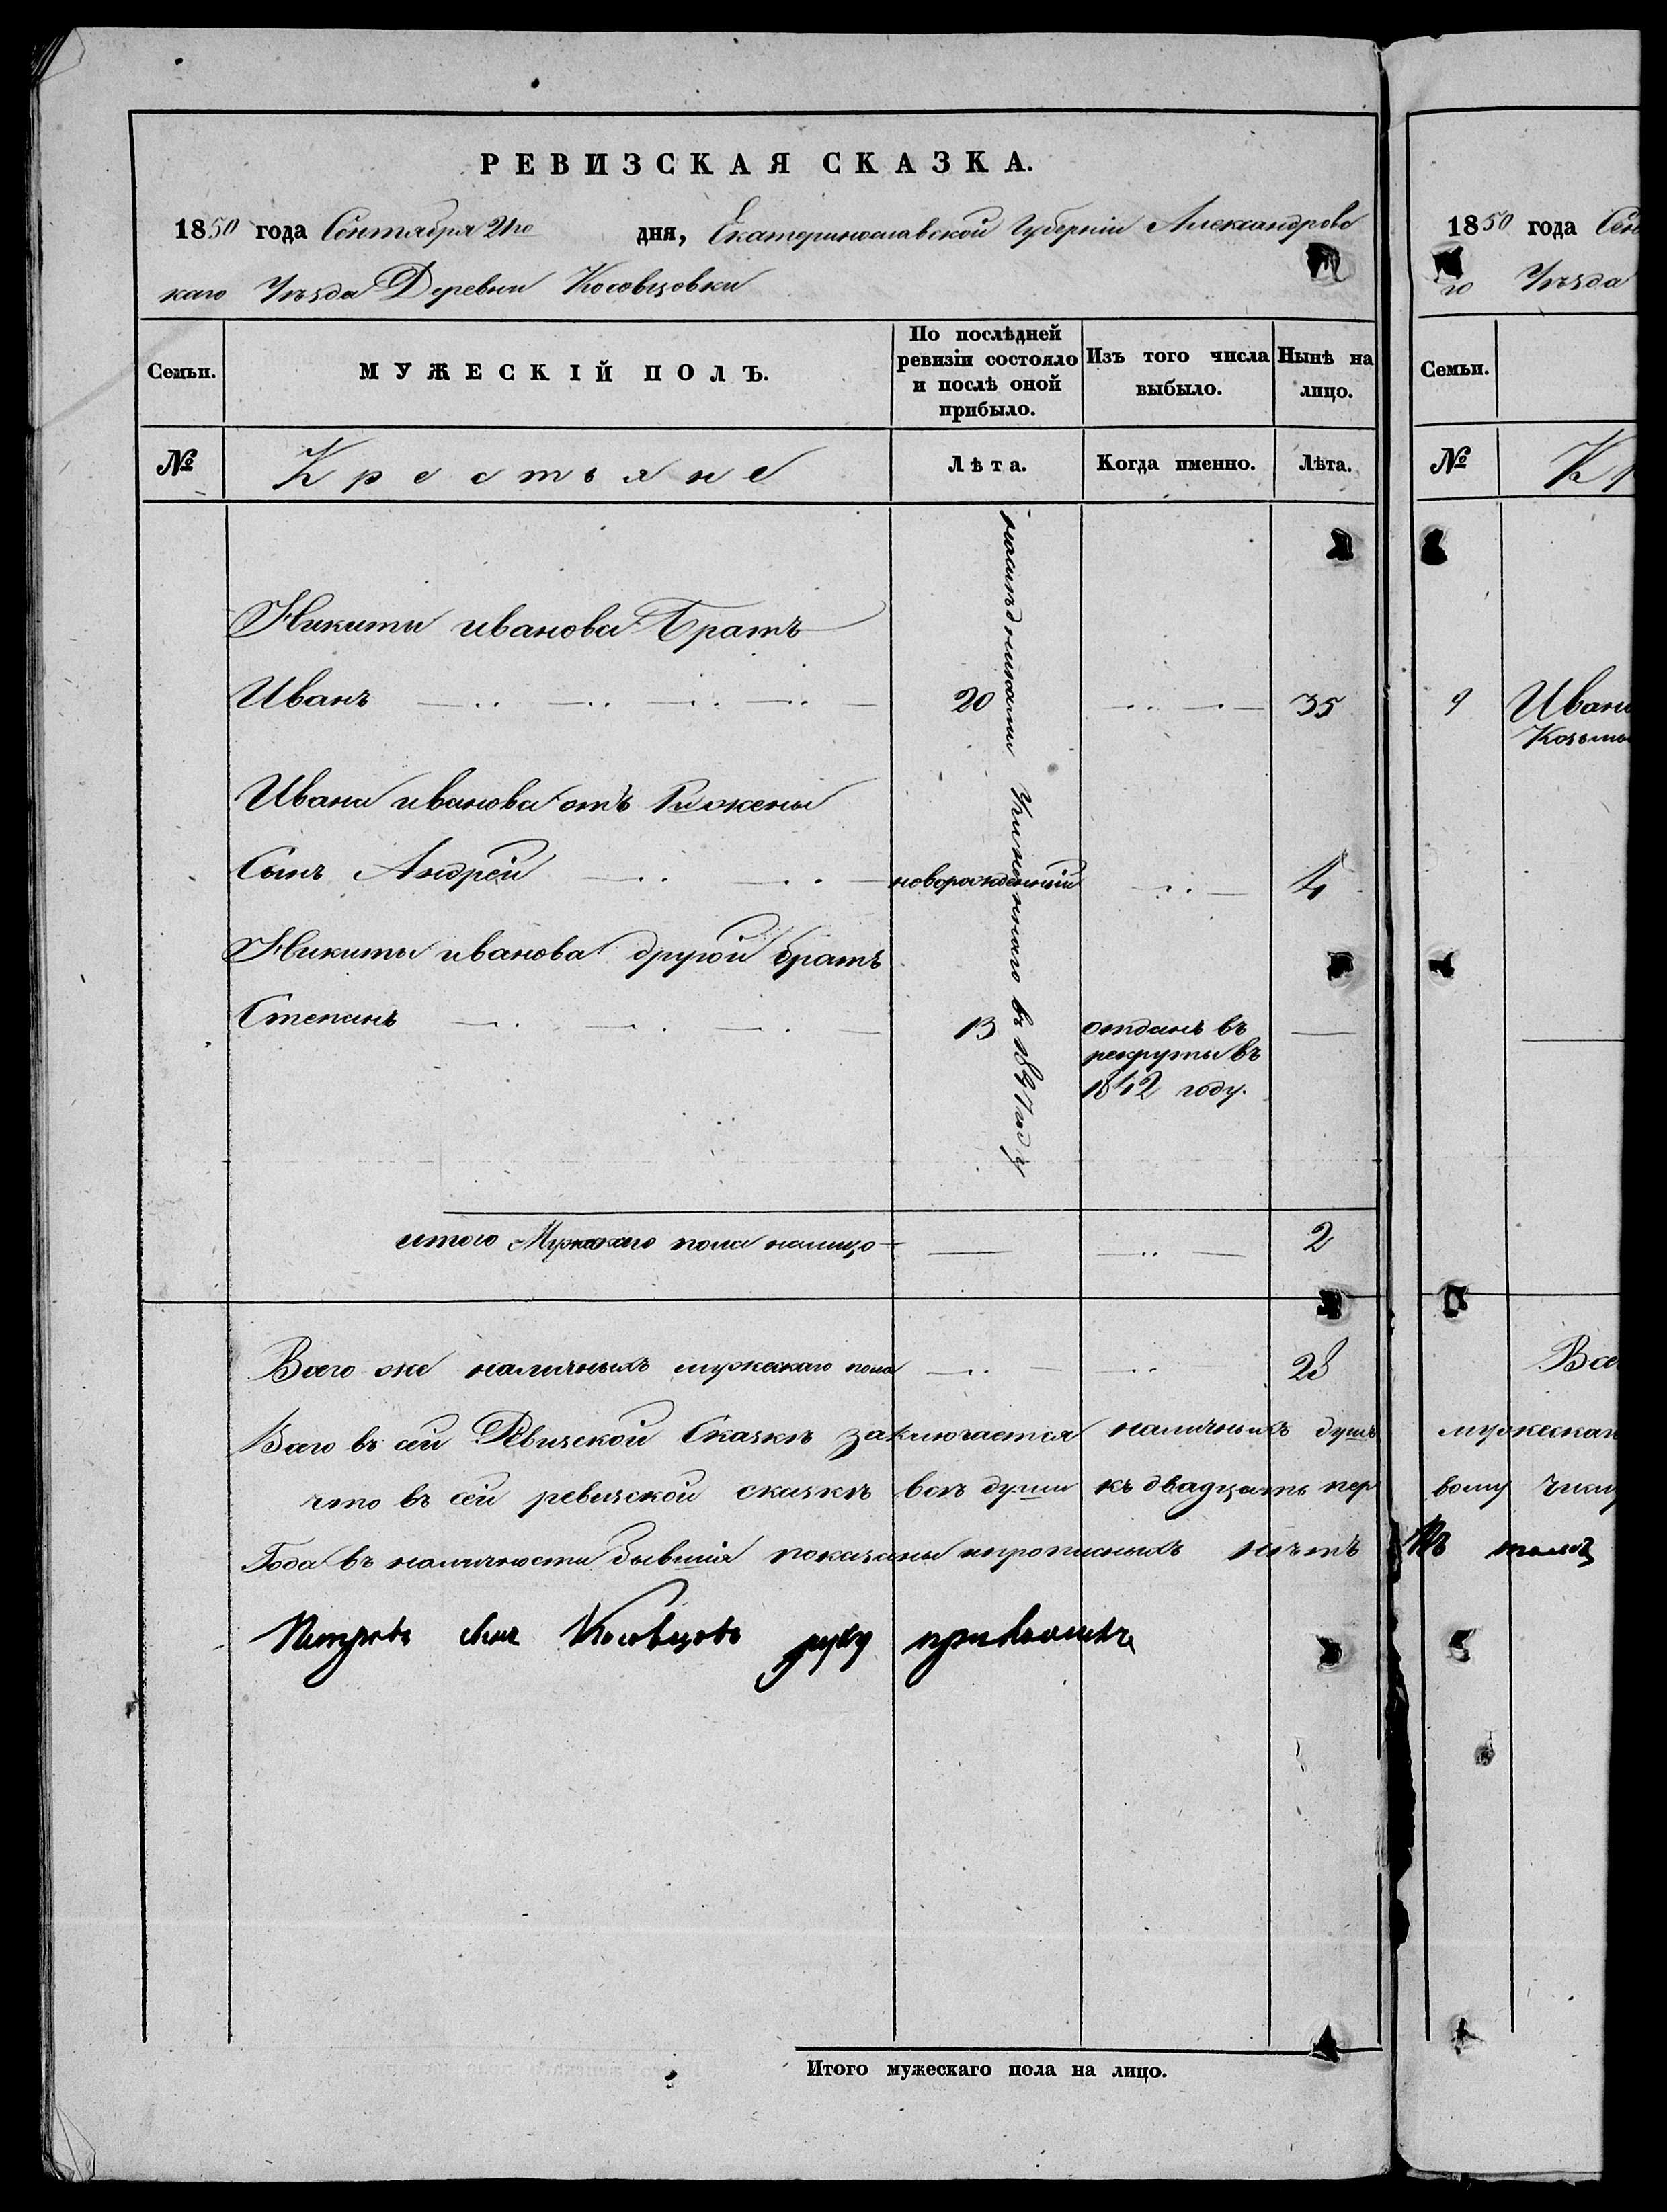 РЕВИЗСКАЯ СКАЗКА.
1850 года Сентября 21го дня, Екатеринославской Губернии Александровс
каго Уѣзда Деревни Косовцовки
Семьи.
МУЖЕСКІЙ ПОЛЪ.
По послѣдней
ревизіи состояло
и послѣ оной
прибыло.
Изъ того числа
выбыло.
Нынѣ на
лицо.
№ Крестьяне Лѣта. Когда именно. Лѣта.
Никиты иванова Братъ
Иванъ 20 35
Ивана иванова отъ
Сынъ Андрей новорожденный 4
Никиты иванова другой братъ
Степанъ 13 отданъ въ
рекруты въ
1842 году.
въ году
итого Мужескаго пола налицо 2
Всего же наличныхъ мужескаго пола 28
Всего въ сей Ревизской Сказкѣ заключается наличныхъ душъ
что въ сей ревизской сказкѣ всѣ души къ двадцать пер
Года въ наличности бывшія показаны ипрописныхъ нѣтъ
Косовцовъ руку приложилъ
Итого мужескаго пола на лицо.
1850 года Сен
го Уѣзда
Семьи.
№ Кр
9 Иван
Козьмы
Все
мужескаг
вому числу
Въ томъ